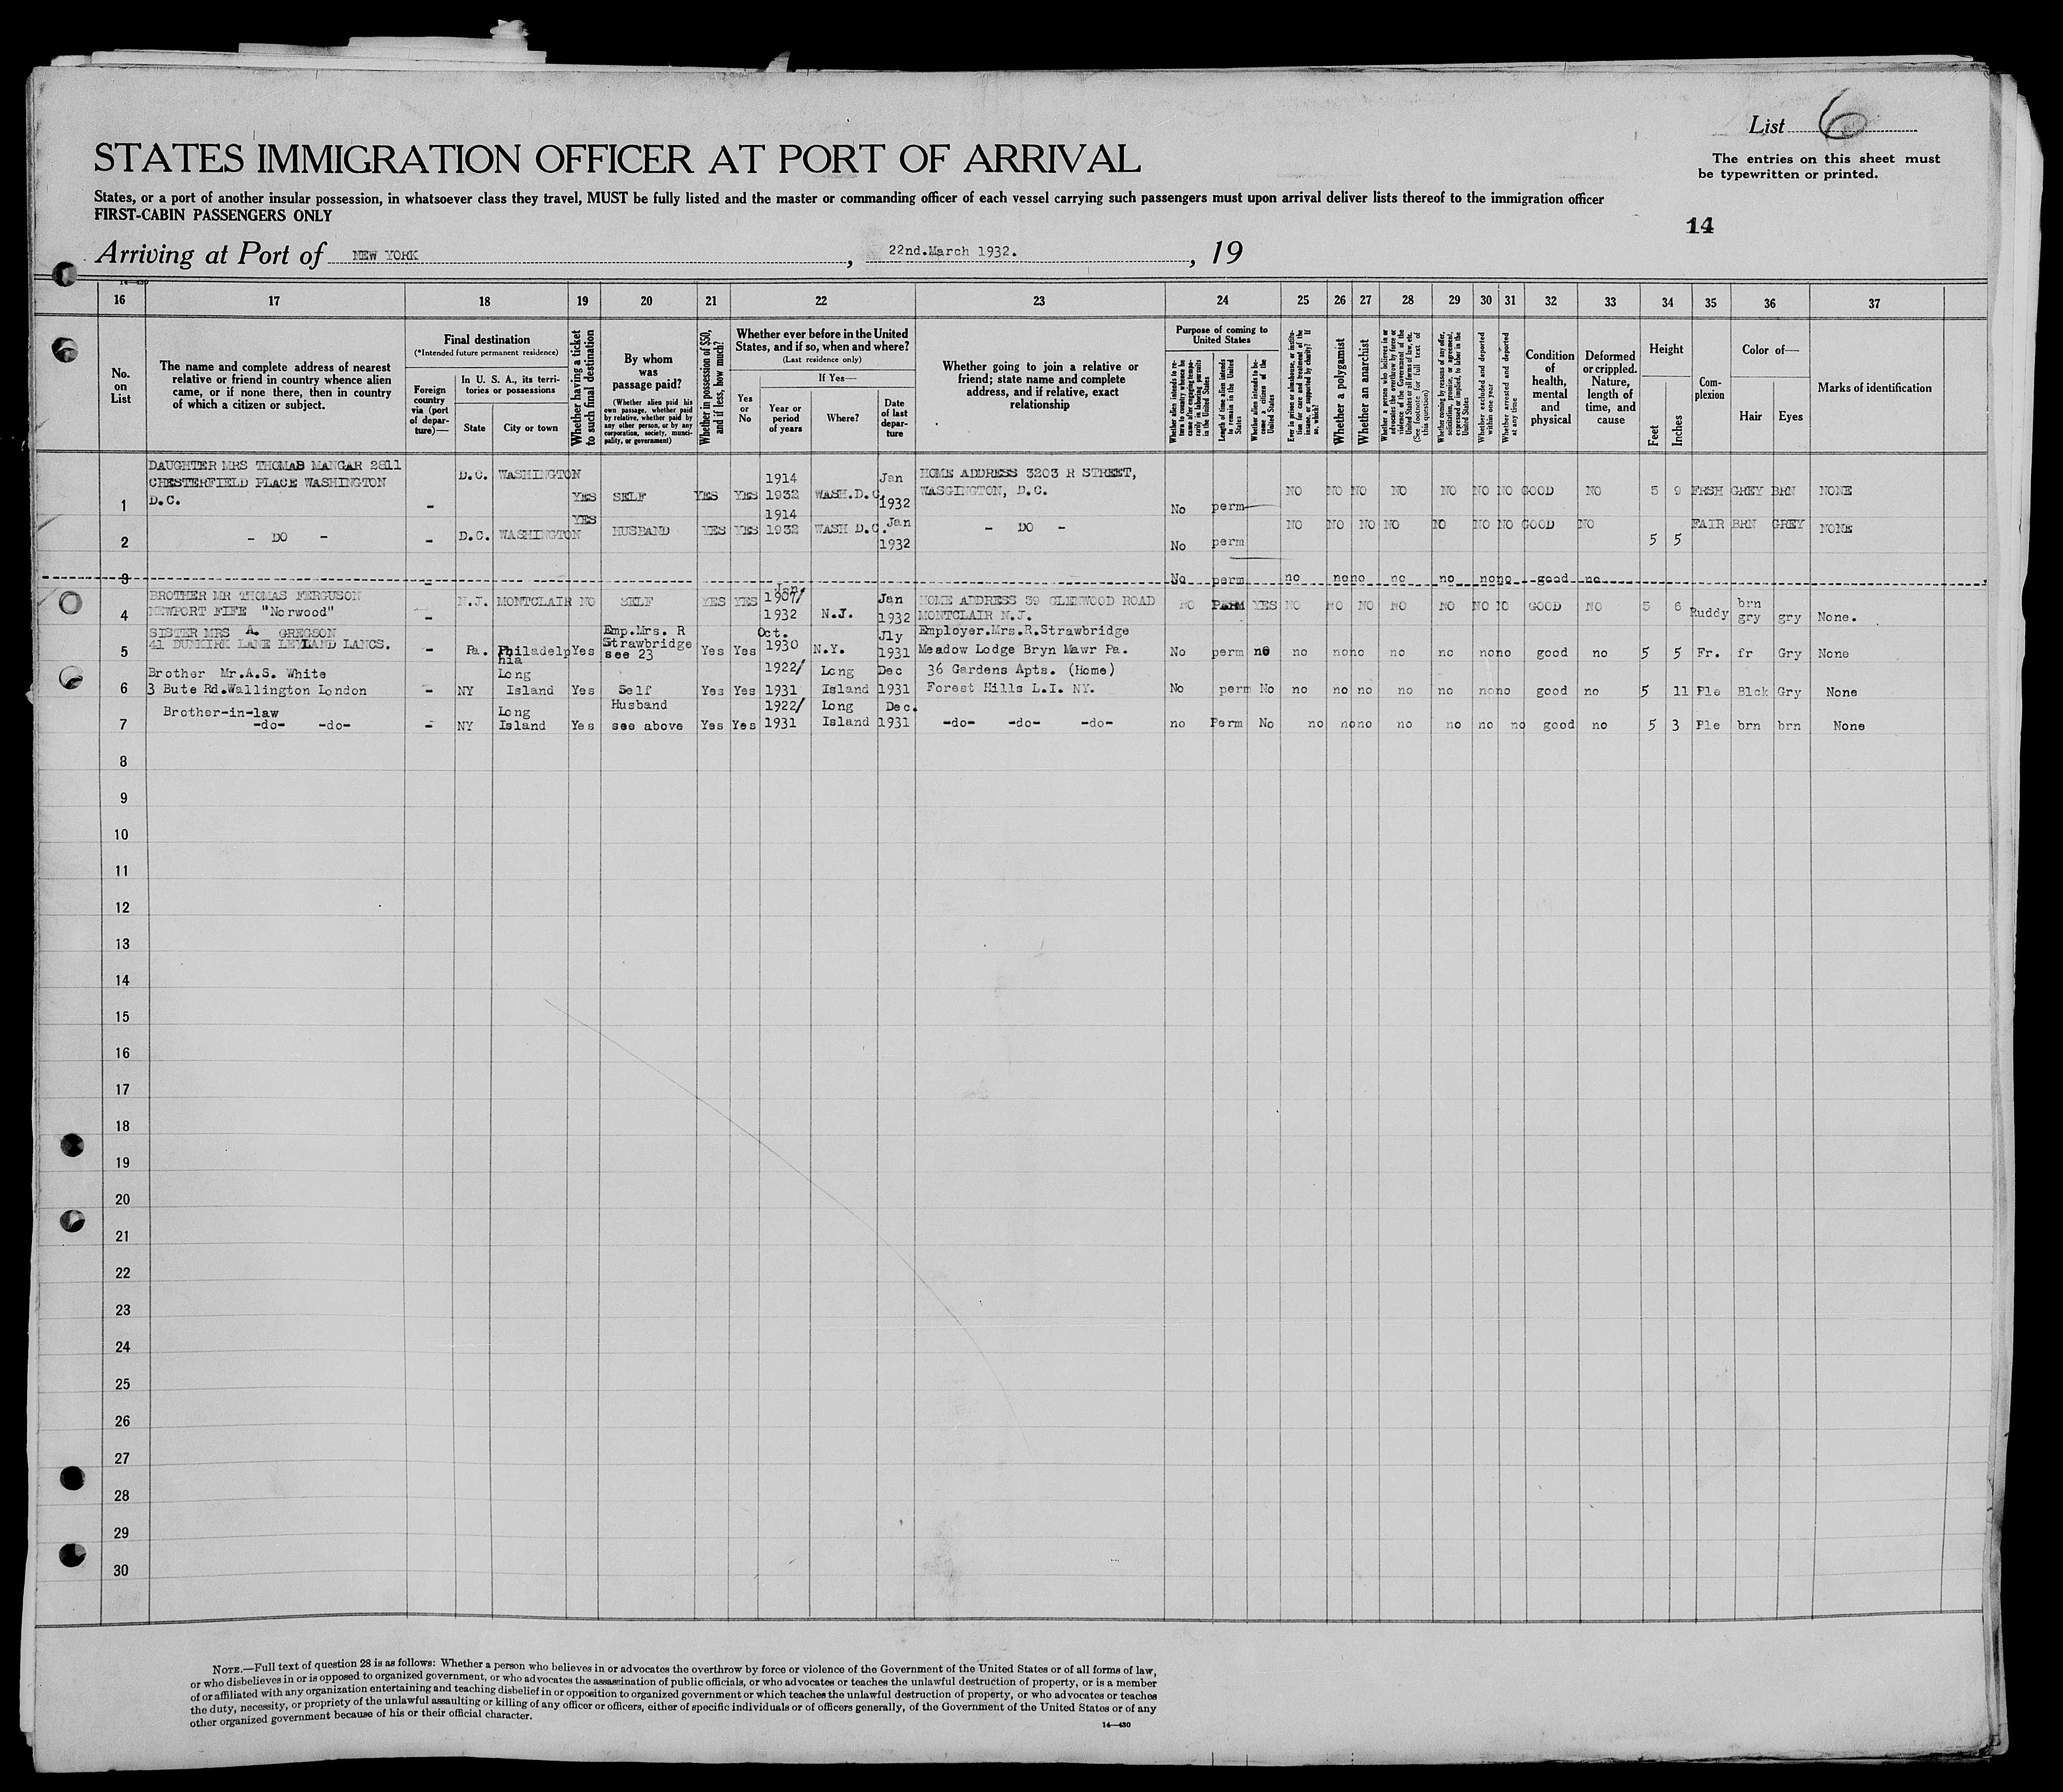 List 6
STATES IMMIGRATION OFFICER AT PORT OF ARRIVAL
The entries on this sheet must
be typewritten or printed.
States, or a port of another insular possession, in whatsoever class they travel, MUST be fully listed and the master or commanding officer of each vessel carrying such passengers must upon arrival deliver lists thereof to the immigration officer
FIRST-CABIN PASSENGERS ONLY
14
Arriving at Port of NEW YORK, 22nd.March 1932., 19
16 17 18 19 20 21 22 23 24 25 26 27 28 29 30 31 32 33 34 35 36 37
No. on List
The name and complete address of nearest relative or friend in country whence alien came, or if none there, then in country of which a citizen or subject.
Final destination
(*Intended future permanent residence)
Foreign country via (port of departure)—
In U. S. A., its territories or possessions
State
City or town
Whether having a ticket to such final destination
By whom was passage paid?
(Whether alien paid his own passage, whether paid by relative, whether paid by any other person, or by any corporation, society, municipality, or government)
Whether in possession of $50, and if less, how much?
Whether ever before in the United States, and if so, when and where?
(Last residence only)
Yes or No
If Yes—
Year or period of years
Where?
Date of last departure
Whether going to join a relative or friend; state name and complete address, and if relative, exact relationship
Purpose of coming to United States
Whether alien intends to return to country whence he came after engaging temporarily in laboring pursuits in the United States
Length of time alien intends to remain in the United States
Whether alien intends to become a citizen of the United States
Ever in prison or almshouse, or institution for care and treatment of the insane, or supported by charity? If so, which?
Whether a polygamist
Whether an anarchist
Whether a person who believes in or advocates the overthrow by force or violence of the Government of the United States or all forms of law, etc. (See footnote for full text of this question)
Whether coming by reason of any offer, solicitation, promise, or agreement, expressed or implied, to labor in the United States
Whether excluded and deported within one year
Whether arrested and deported at any time
Condition of health, mental and physical
Deformed or crippled. Nature, length of time, and cause
Height
Feet
Inches
Complexion
Color of—
Hair
Eyes
Marks of identification
1 DAUGHTER MRS THOMAS MANGAR 2811 CHESTERFIELD PLACE WASHINGTON D.C. - D.C. WASHINGTON YES SELF YES YES 1914 1932 WASH.D.C. Jan 1932 HOME ADDRESS 3203 R STREET, WASGINGTON, D.C. No perm NO NO NO NO NO NO NO GOOD NO 5 9 FRSH GREY BRN NONE
2 - DO - - D.C. WASHINGTON YES HUSBAND YES YES 1914 1932 WASH D.C. Jan 1932 - DO - No perm NO NO NO NO NO NO NO GOOD NO 5 5 FAIR BRN GREY NONE
3 - No perm no no no no no no no good no
4 BROTHER MR THOMAS FERGUSON NEWPORT FIFE "Norwood" - N.J. MONTCLAIR NO SELF YES YES Jan 1907/ 1932 N.J. Jan 1932 HOME ADDRESS 39 GLENWOOD ROAD MONTCLAIR N.J. NO PERM YES NO NO NO NO NO NO NO GOOD NO 5 6 Ruddy brn gry gry None.
5 SISTER MRS A. GREGSON 41 DUNKIRK LANE LEYLAND LANCS. - Pa. Philadelphia Yes Emp.Mrs. R Strawbridge see 23 Yes Yes Oct. 1930 N.Y. Jly 1931 Employer.Mrs.R.Strawbridge Meadow Lodge Bryn Mawr Pa. No perm no no no no no no no no good no 5 5 Fr. fr Gry None
6 Brother Mr.A.S. White 3 Bute Rd.Wallington London - NY Long Island Yes Self Yes Yes 1922/ 1931 Long Island Dec 1931 36 Gardens Apts. (Home) Forest Hills L.I. NY. No perm No no no no no no no no good no 5 11 Ple Blck Gry None
7 Brother-in-law -do- -do- - NY Long Island Yes Husband see above Yes Yes 1922/ 1931 Long Island Dec. 1931 -do- -do- -do- no Perm No no no no no no no no good no 5 3 Ple brn brn None
8
9
10
11
12
13
14
15
16
17
18
19
20
21
22
23
24
25
26
27
28
29
30
NOTE.—Full text of question 28 is as follows: Whether a person who believes in or advocates the overthrow by force or violence of the Government of the United States or of all forms of law,
or who disbelieves in or is opposed to organized government, or who advocates the assassination of public officials, or who advocates or teaches the unlawful destruction of property, or is a member
of or affiliated with any organization entertaining and teaching disbelief in or opposition to organized government or which teaches the unlawful destruction of property, or who advocates or teaches
the duty, necessity, or propriety of the unlawful assaulting or killing of any officer or officers, either of specific individuals or of officers generally, of the Government of the United States or of any
other organized government because of his or their official character.
14—430